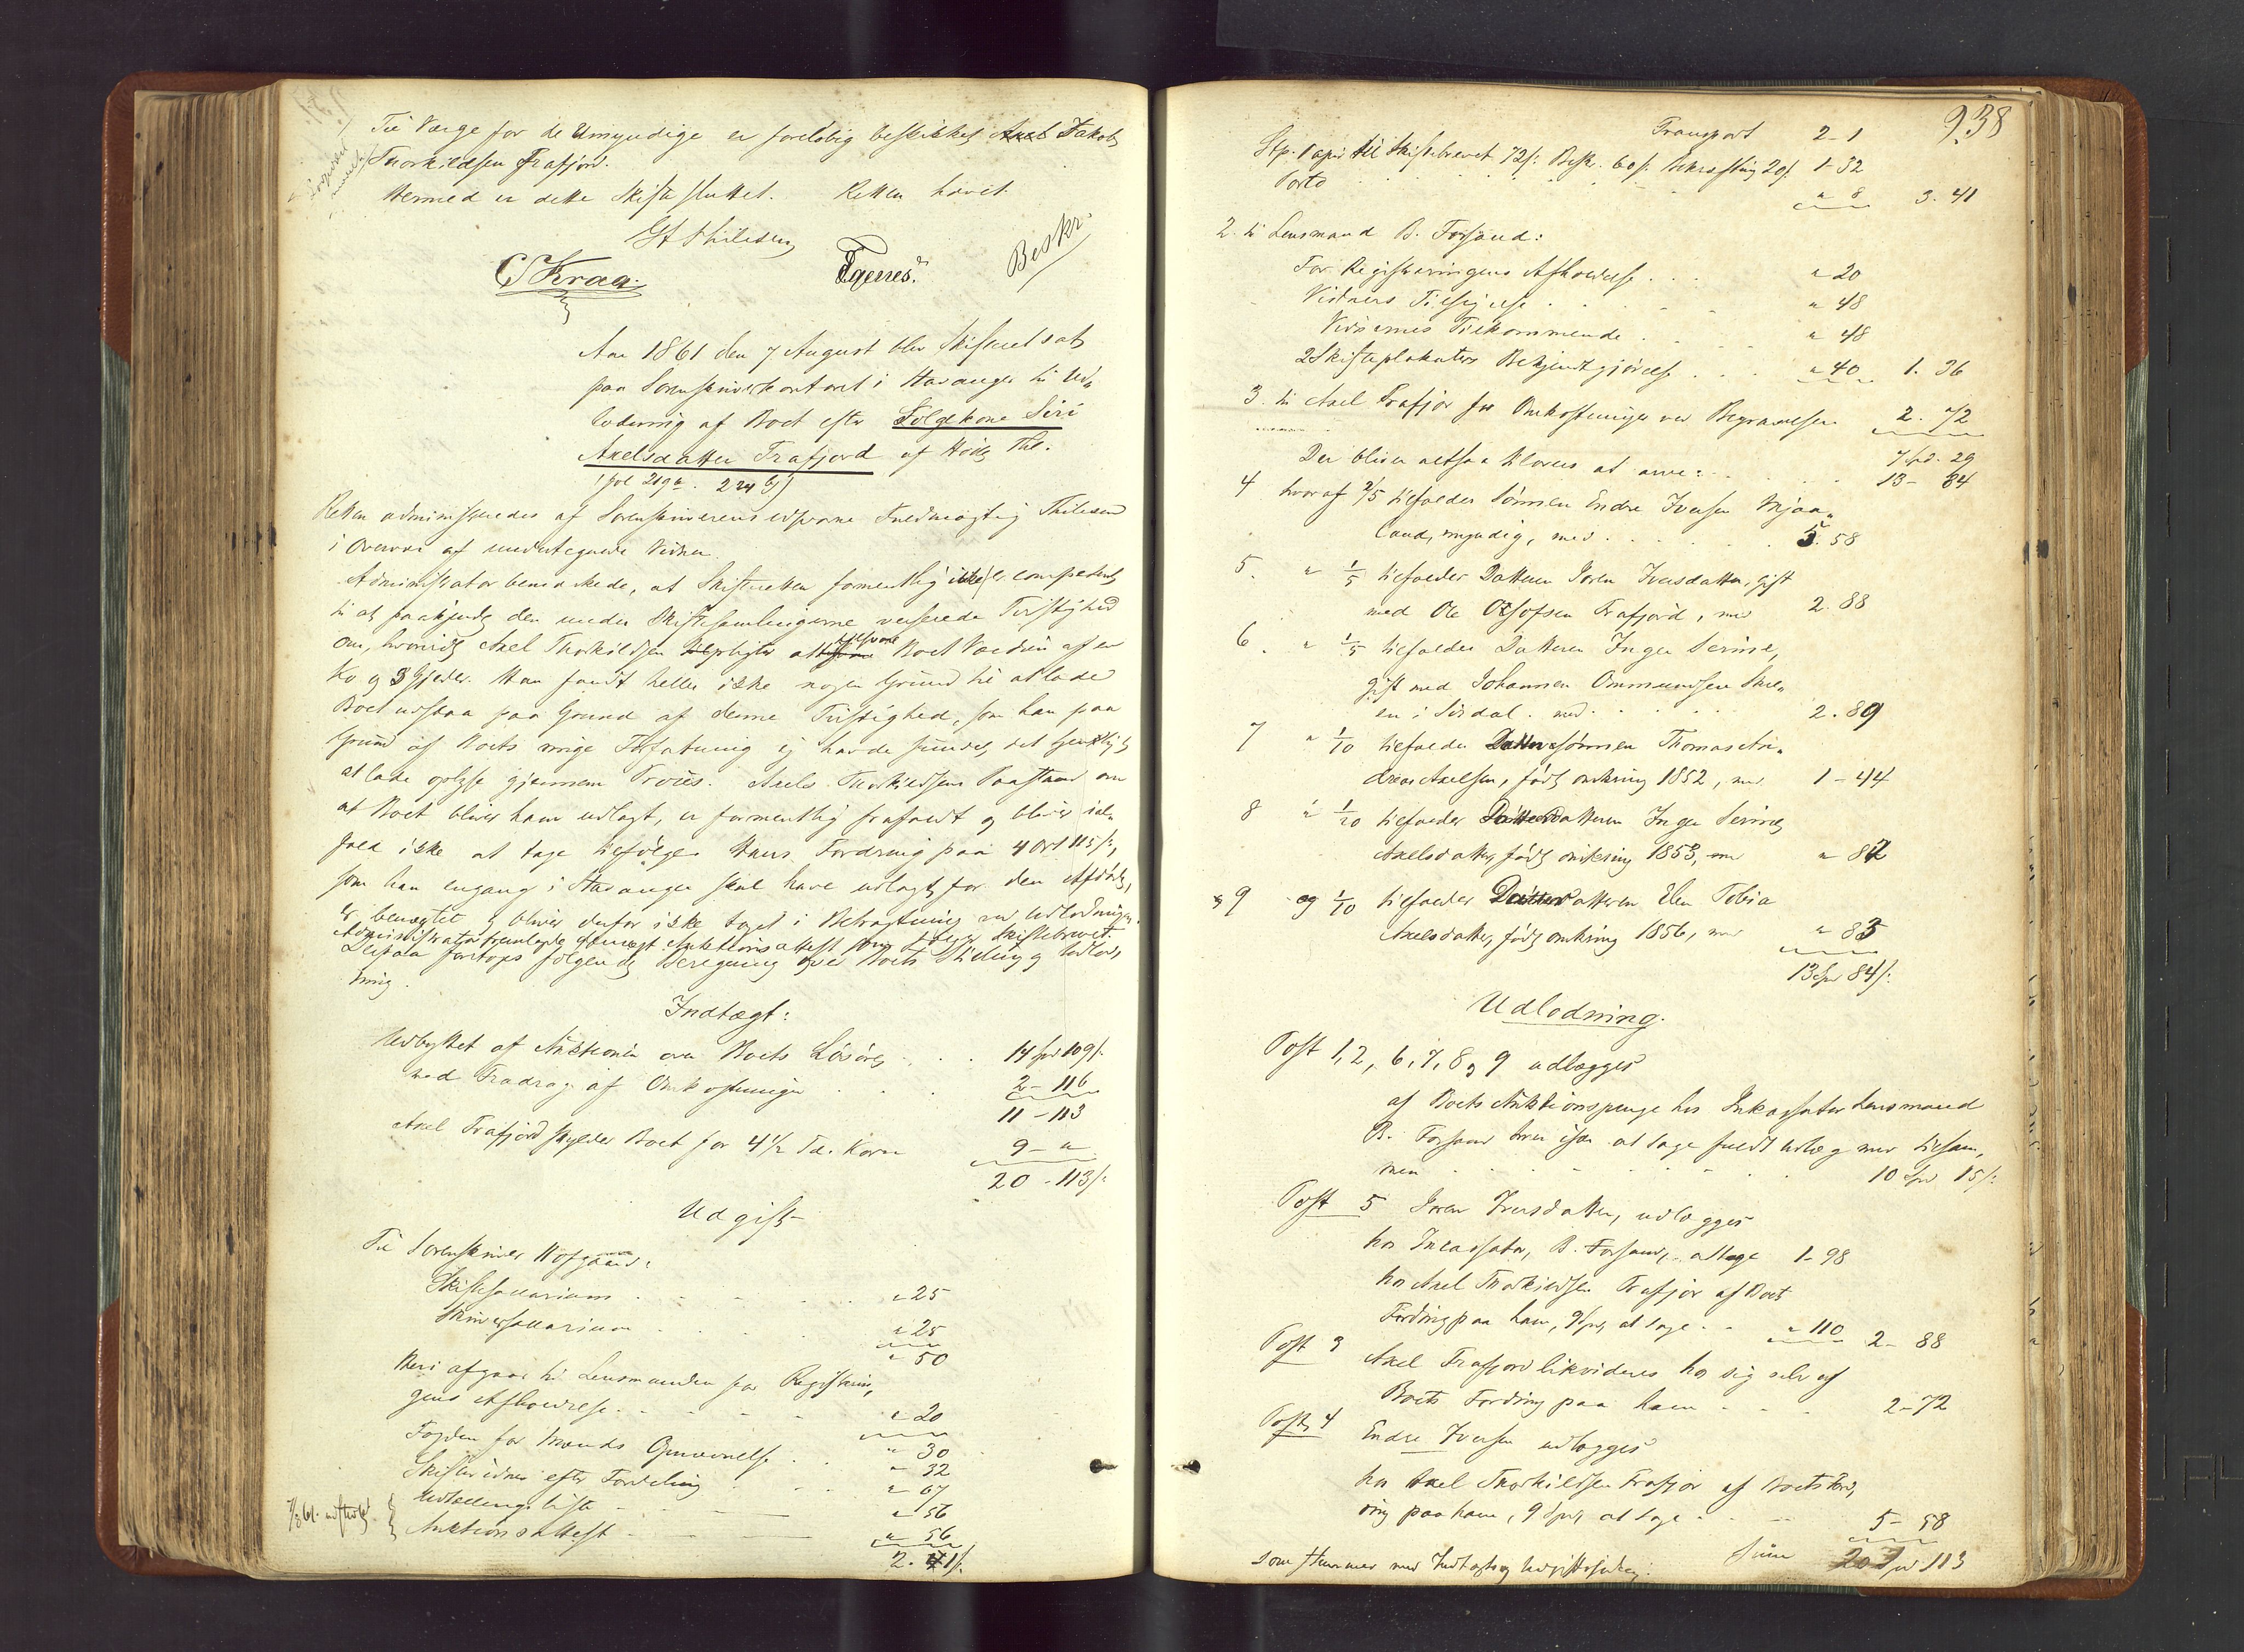 Til Værge for de Umyndige er foreløbig beskikket Axel Jakob
Thorkildsen Frafjord.
Hermed er dette Skifte sluttet. Retten hævet.
Thilesen
C Kraa. Tjennes. Beskr.
Aar 1861 den 7 August blev Skifteret sat
paa Sorenskriverkontoret i Stavanger til Ud„
lodning af Boet efter Folgekone Siri
Axelsdatter Frafjord af Høle Thl.
(fol 219a. 224b)
Retten administreredes af Sorenskriverens edsvorne Fuldmægtig Thilesen
i Overvær af undertegnede Vidner.
Administrator bemærkede, at Skifteretten formentlig ikke er competent
til at paakjende den under Skiftesamlingerne verserede Tvistighed
om, hvorvidt Axel Thorkildsen er pligtig at tilsvare Boet Værdien af en
Ko og 3 Gjeder. Man fandt heller ikke nogen Grund til at lade
Boet udstaa paa Grund af denne Tvistighed, som han paa
Grund af Boets ringe Forfatning ej havde fundet det
at lade oplyse gjennem Proces. Axel Thorkildsens Paastand om
at Boet bliver ham udlagt, er formentlig frafaldt og bliver ial„
fald ikke at tage tilfølge. Hans Fordring paa 4 Ort 115 /:,
som han engang i Stavanger skal have udlagt for den Afdøde,
er benægtet og bliver derfor ikke taget i Betragtning ved Udlodningen.
Administrator fremlagde dernæst Auktionsattest som Skiftebrevet.
Derpaa foretoges følgende Beregning over Boets Deling og Udlod„
ning.
Indtægt:
Udbyttet af Auktionen over Boets Løsøre . . . 14 Spd 109 /:
ved Fradrag af Omkostninger . . . 2 - 116
11 - 113
Axel Frafjord skylder Boet for 4½ Td. Korn 9 - "
20 - 113 /:
Udgift
Til Sorenskriver Hofgaard:
Skiftesallarium . . . " 25
Skriversallarium . . . " 25
" 50
Heri afgaar til Lensmanden for Registrerin„
gens Afholdelse . . . " 20
" 30
Fogden for Mænds Opnævnelse . . " 32
Skiftevidner efter Fordeling . . " 67
Udlodningsliste " 56
Auktionsattest " 56
2. 1 /:
938
Transport 2 - 1
Stp. Papir til Skiftebrevet 72 /: Beskr. 60 /: Bekræftning 20 /: 1 - 32
Porto " 8 3. 41
2. til Lensmand B. Forsand:
For Registreringens Afholdelse . . . " 20
Vidners Tilsigelse . . . " 48
Vidnernes Tilkommende . . . " 48
2 Skifteplakaters Bekjendtgjørelse . . . " 40 1. 36
3. til Axel Frafjor for Omkostninger ved Begravelsen 2. 72
7 Spd. 29
Der bliver altsaa tilovers at arve: . . . 13 - 84
4 hvoraf 2/5 tilfalder Sønnen Endre Iversen Mjaa„
land, myndig, med . . . 5. 58
5. " 1/5 tilfalder Datteren Joren Iversdatter, gift
med Ole Olsofsen Frafjord, med 2. 88
6. " 1/5 tilfalder Datteren Inger Serine,
gift med Johannes Ommundsen Skre„
en i Sirdal . med . . . 2. 89
7 " 1/10 tilfalder Dattersønnen Thomas An„
dreas Axelsen, født omkring 1852, med 1 - 44
8 " 1/20 tilfalder Datterdatteren Inger Serine
Axelsdatter, født omkring 1853, med " 82
9 og 1/10 tilfalder Datterdatteren Elen Tobia
Axelsdatter, født omkring 1856, med " 83
13 Spd 84 /:
Udlodning.
Post 1, 2, 6, 7, 8 og 9 udlægges
af Boets Auktionspenge hos Inkassator Lensmand
B. Forsand hver især at tage fuldt Udlæg med tilsam„
men . . . 10 Spd 15 /:
Post 5 Joren Iversdatter, udlægges
hos Incassator, B. Forsand, at tage 1 - 98
hos Axel Thorkildsen Frafjor af Boets
Fordring paa ham, 9 Spd, at tage . . " 110 2 - 88
Post 3 Axel Frafjord likviderer hos sig selv af
Boets Fordring paa ham . . . 2 - 72
Post 4 Endre Iversen udlægges
hos Axel Thorkildsen Frafjor af Boets Ford„
ring paa ham, 9 Spd, at tage . . . 5 - 58
Sum 20 Spd 113
som stemmer med Indtægts og Udgiftssiden.